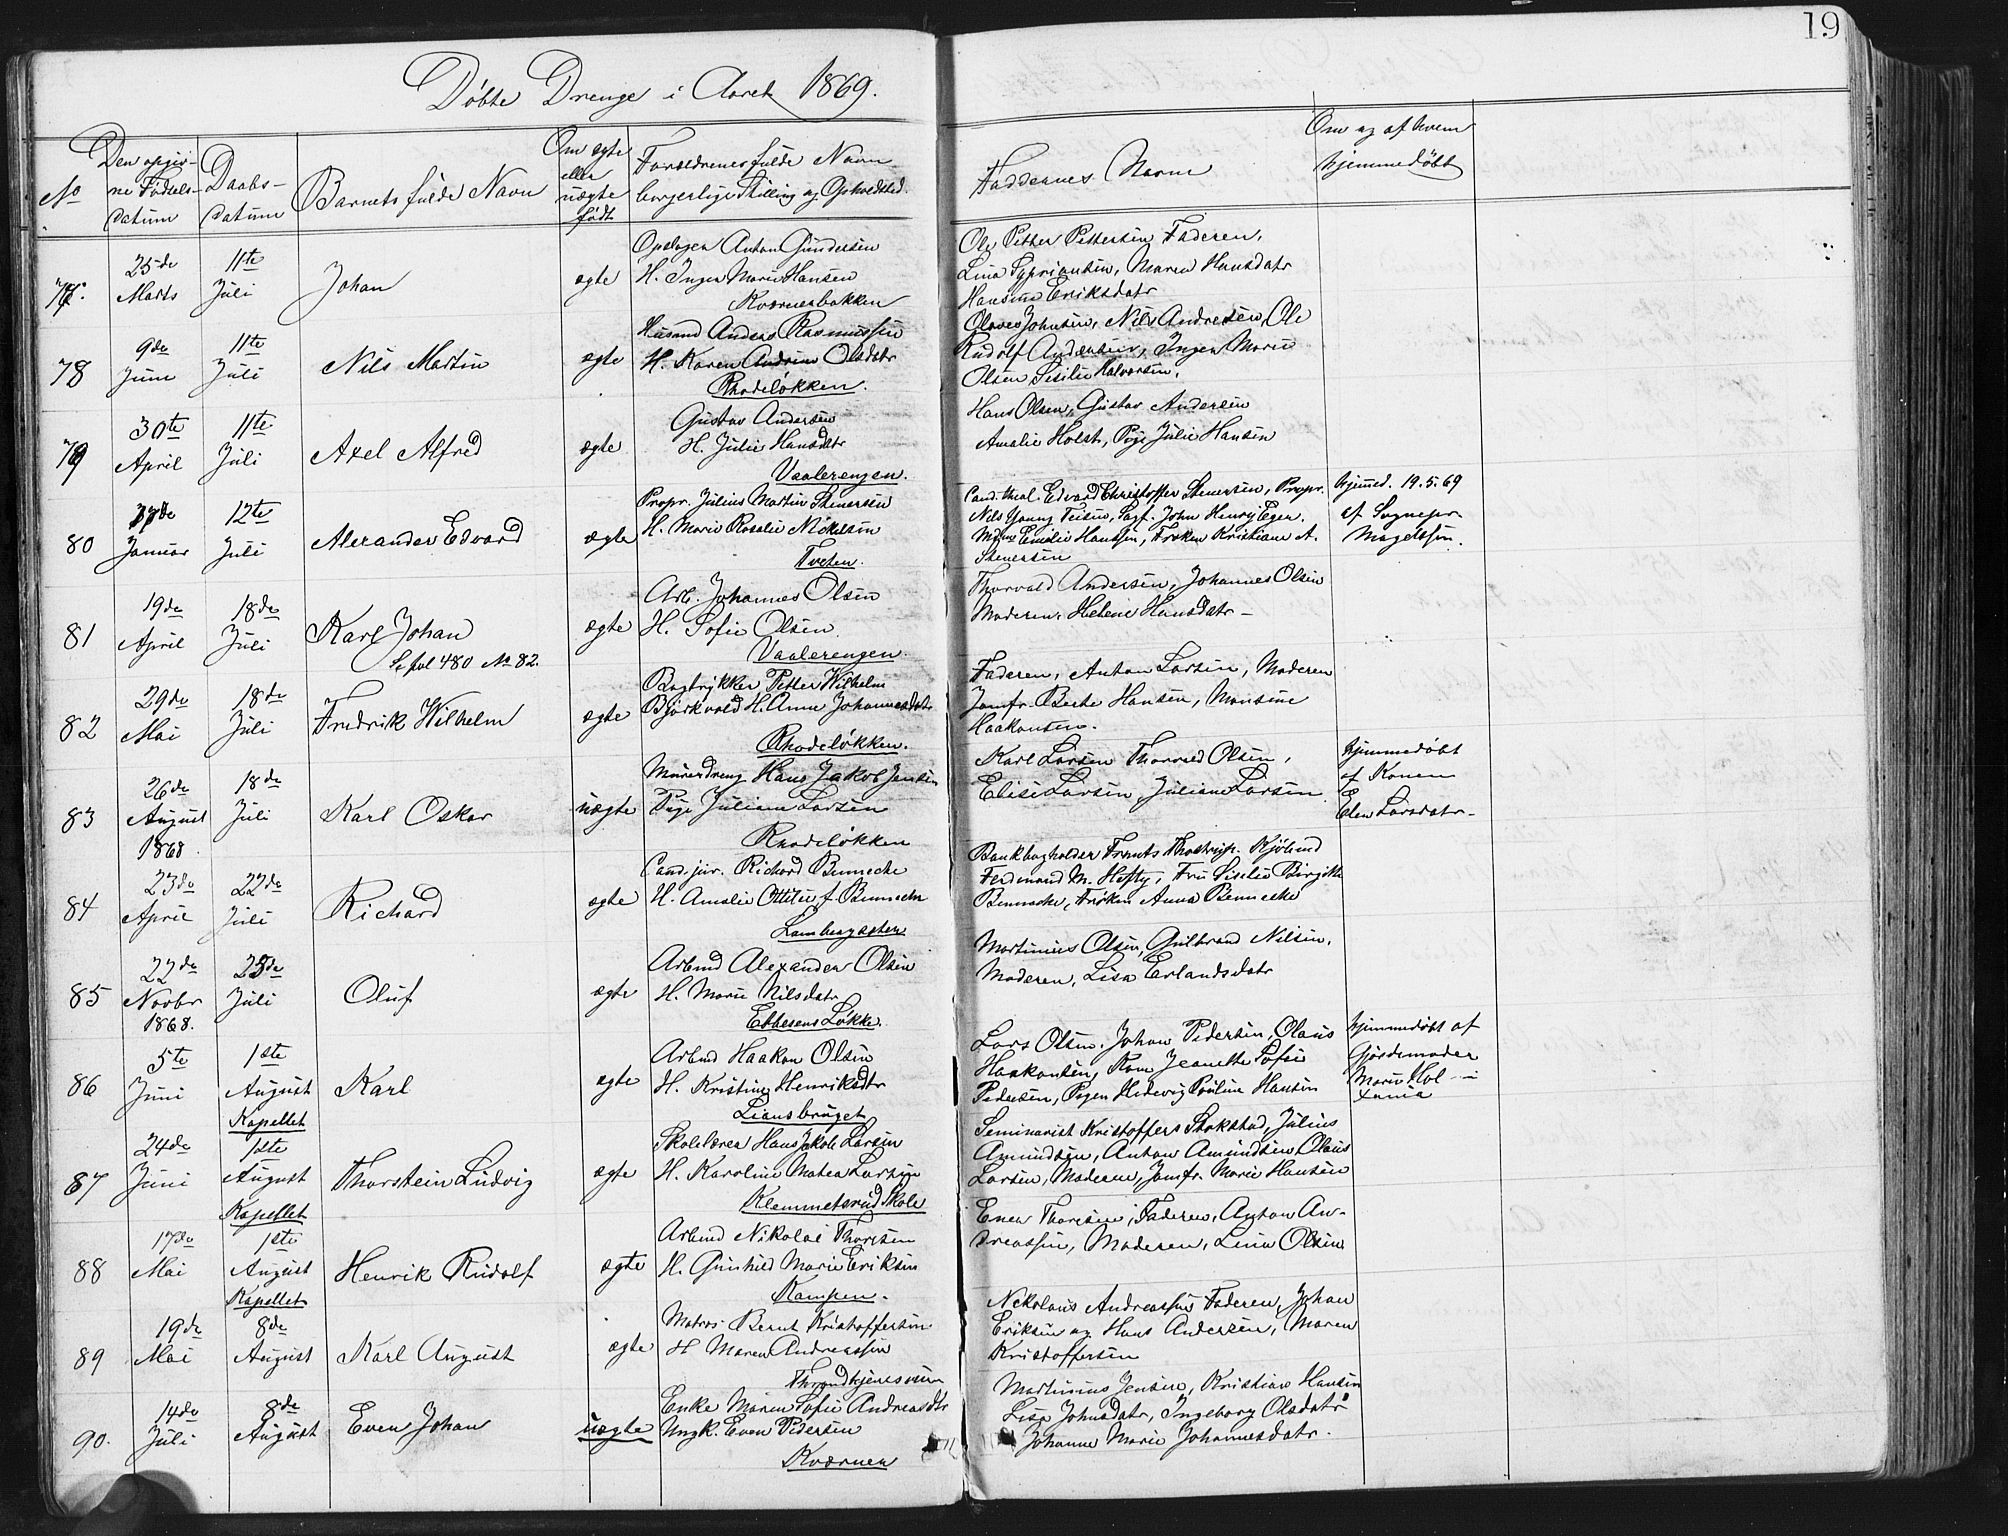 19
Døbte Drenge i Aaret 1869.
No
Den opgiv-
ne Fødsels-
datum
Daabs-
datum
Barnets fulde Navn
Om ægte
eller
uægte
født
Forældrenes fulde Navn
borgerlige Stilling og Opholdsted.
Faddernes Navne
Om og af hvem
hjemmedøbt
77.
25de
Marts
11te
Juli
Johan
ægte
Anton Gundersen
H. Inger Marie Hansen
Kværnerbakken
Ole Petter Pettersen Faderen,
Lina Sypriansen, Maren Hansdatr
Hansine Eriksdatr
78
9de
Juni
11te
Juli
Nils Martin
ægte
Husmd Anders Rasmussen
H. Karen Andrine Olsdatr
Rhodeløkken.
Olaves Johnsen, Nils Andresen, Ole
Rudolf Andersen, Inger Marie
Olsen Sisilie Halvorsen.
79
30te
April
11te
Juli
Axel Alfred
ægte
Gustav Andersen
H. Julie Hansdtr
Vaalerengen.
Hans Olsen, Gustav Andersen
Amalie Holst, Pige Julie Hansen
80
Januar
12te
Juli
Alexander Edvard
ægte
Propr. Julius Martin Stenersen
H. Marie Rosalie Mökelsen
Tveten.
Cand. theol. Edvard Christoffer Stenersen, Propr.
Nils Young Teisen, Sagf. John Henry Eger.
Emilie Hanssen, Frøken Kristiane A.
Stenersen
hjemmed. 19.5.69
af Sognepr.
Magelssen.
81
19de
April
18de
Juli
Karl Johan
Se fol 480 No 82.
ægte
Arb. Johannes Olsen
H. Sofie Olsen.
Vaalerengen
Thorvald Andersen, Johannes Olsen
Moderen, Helene Hansdatr -
82
29de
Mai
18de
Juli
Fredrik Wilhelm
ægte
Bogtrykker Petter Wilhelm
Björkvold H. Anne Johannesdatr
Rhodeløkken.
Faderen, Anton Larsen, Moderen
Jomfr. Berte Hansen, Monsine
Haakonsen.
83
26de
August
1868.
18de
Juli
Karl Oskar
uægte
Murerdreng Hans Jakob Jensen
Pige Juliane Larsen
Rhodeløkken
Karl Larsen Thorvald Olsen,
Elise Larsen, Juliane Larsen
hjemmedøbt
af Konen
Elen Larsdatr.
84
23de
April
22de
Juli
Richard
ægte
Cand. jur. Richard Bennecke
H. Amalie Ottilie f. Bennecke
Lambergseter
Bankbogholder Frants Thostrup. Kjøbmd
Ferdinand M. Hefty, Fru Sisilie Birgitte
Bennecke, Frøken Anna Bennecke
85
22de
Novbr
1868.
25de
Juli
Oluf
ægte
Arbmd Alexander Olsen
H. Marie Nilsdatr
Ebbesens Løkke.
Martinius Olsen, Gulbrand Nilsen,
Moderen, Lisa Erlandsdatr
86
5te
Juni
1ste
August
Kapellet
Karl
ægte
Arbmd Haakon Olsen
H. Kristine Henriksdtr
Liansbruget
Lars Olsen. Johan Pedersen, Olaus
Haakonsen, Kone Jeanette Sofie
Pedersen, Pigen Hedevig Pauline Hansen
hjemmedøbt af
Gjordemoder
Marie Hol-
87
24de
Juni
1ste
August
Kapellet
Thorstein Ludvig
ægte
Skolelærer Hans Jakob Larsen
H. Karoline Matea Larsen
Klemmetsrud Skole
Seminarist Kristoffers Stokstad, Julius
Amundsen, Anton Amundsen Olaus
Larsen, Moderen, Jomfr. Marie Hansen
88
17de
Mai
1ste
August
Kapellet
Henrik Rudolf
ægte
Arbmd Nikolai Thoresen
H. Gunhild Marie Eriksen
Kampen.
Even Thoresen, Faderen, Anton An-
dreassen, Moderen, Lina Olsen
89
19de
Mai
8de
August
Karl August
ægte
Matros Bernt Kristoffersen
H Maren Andreassen
Throndhjemsveien
Nekolaus Andreassen Faderen, Johan
Eriksen og Hans Andersen, Maren
Kristoffersen
90.
14de
Juli
8de
August
Even Johan
uægte
Enke Maren Sofie Andreasdtr
Ungk. Even Pedersen
Kværner
Martinius Jensen, Kristian Hansen
Lisa Johnsdatr, Ingeborg Olsdatr
Johanne Marie Johannesdatr.